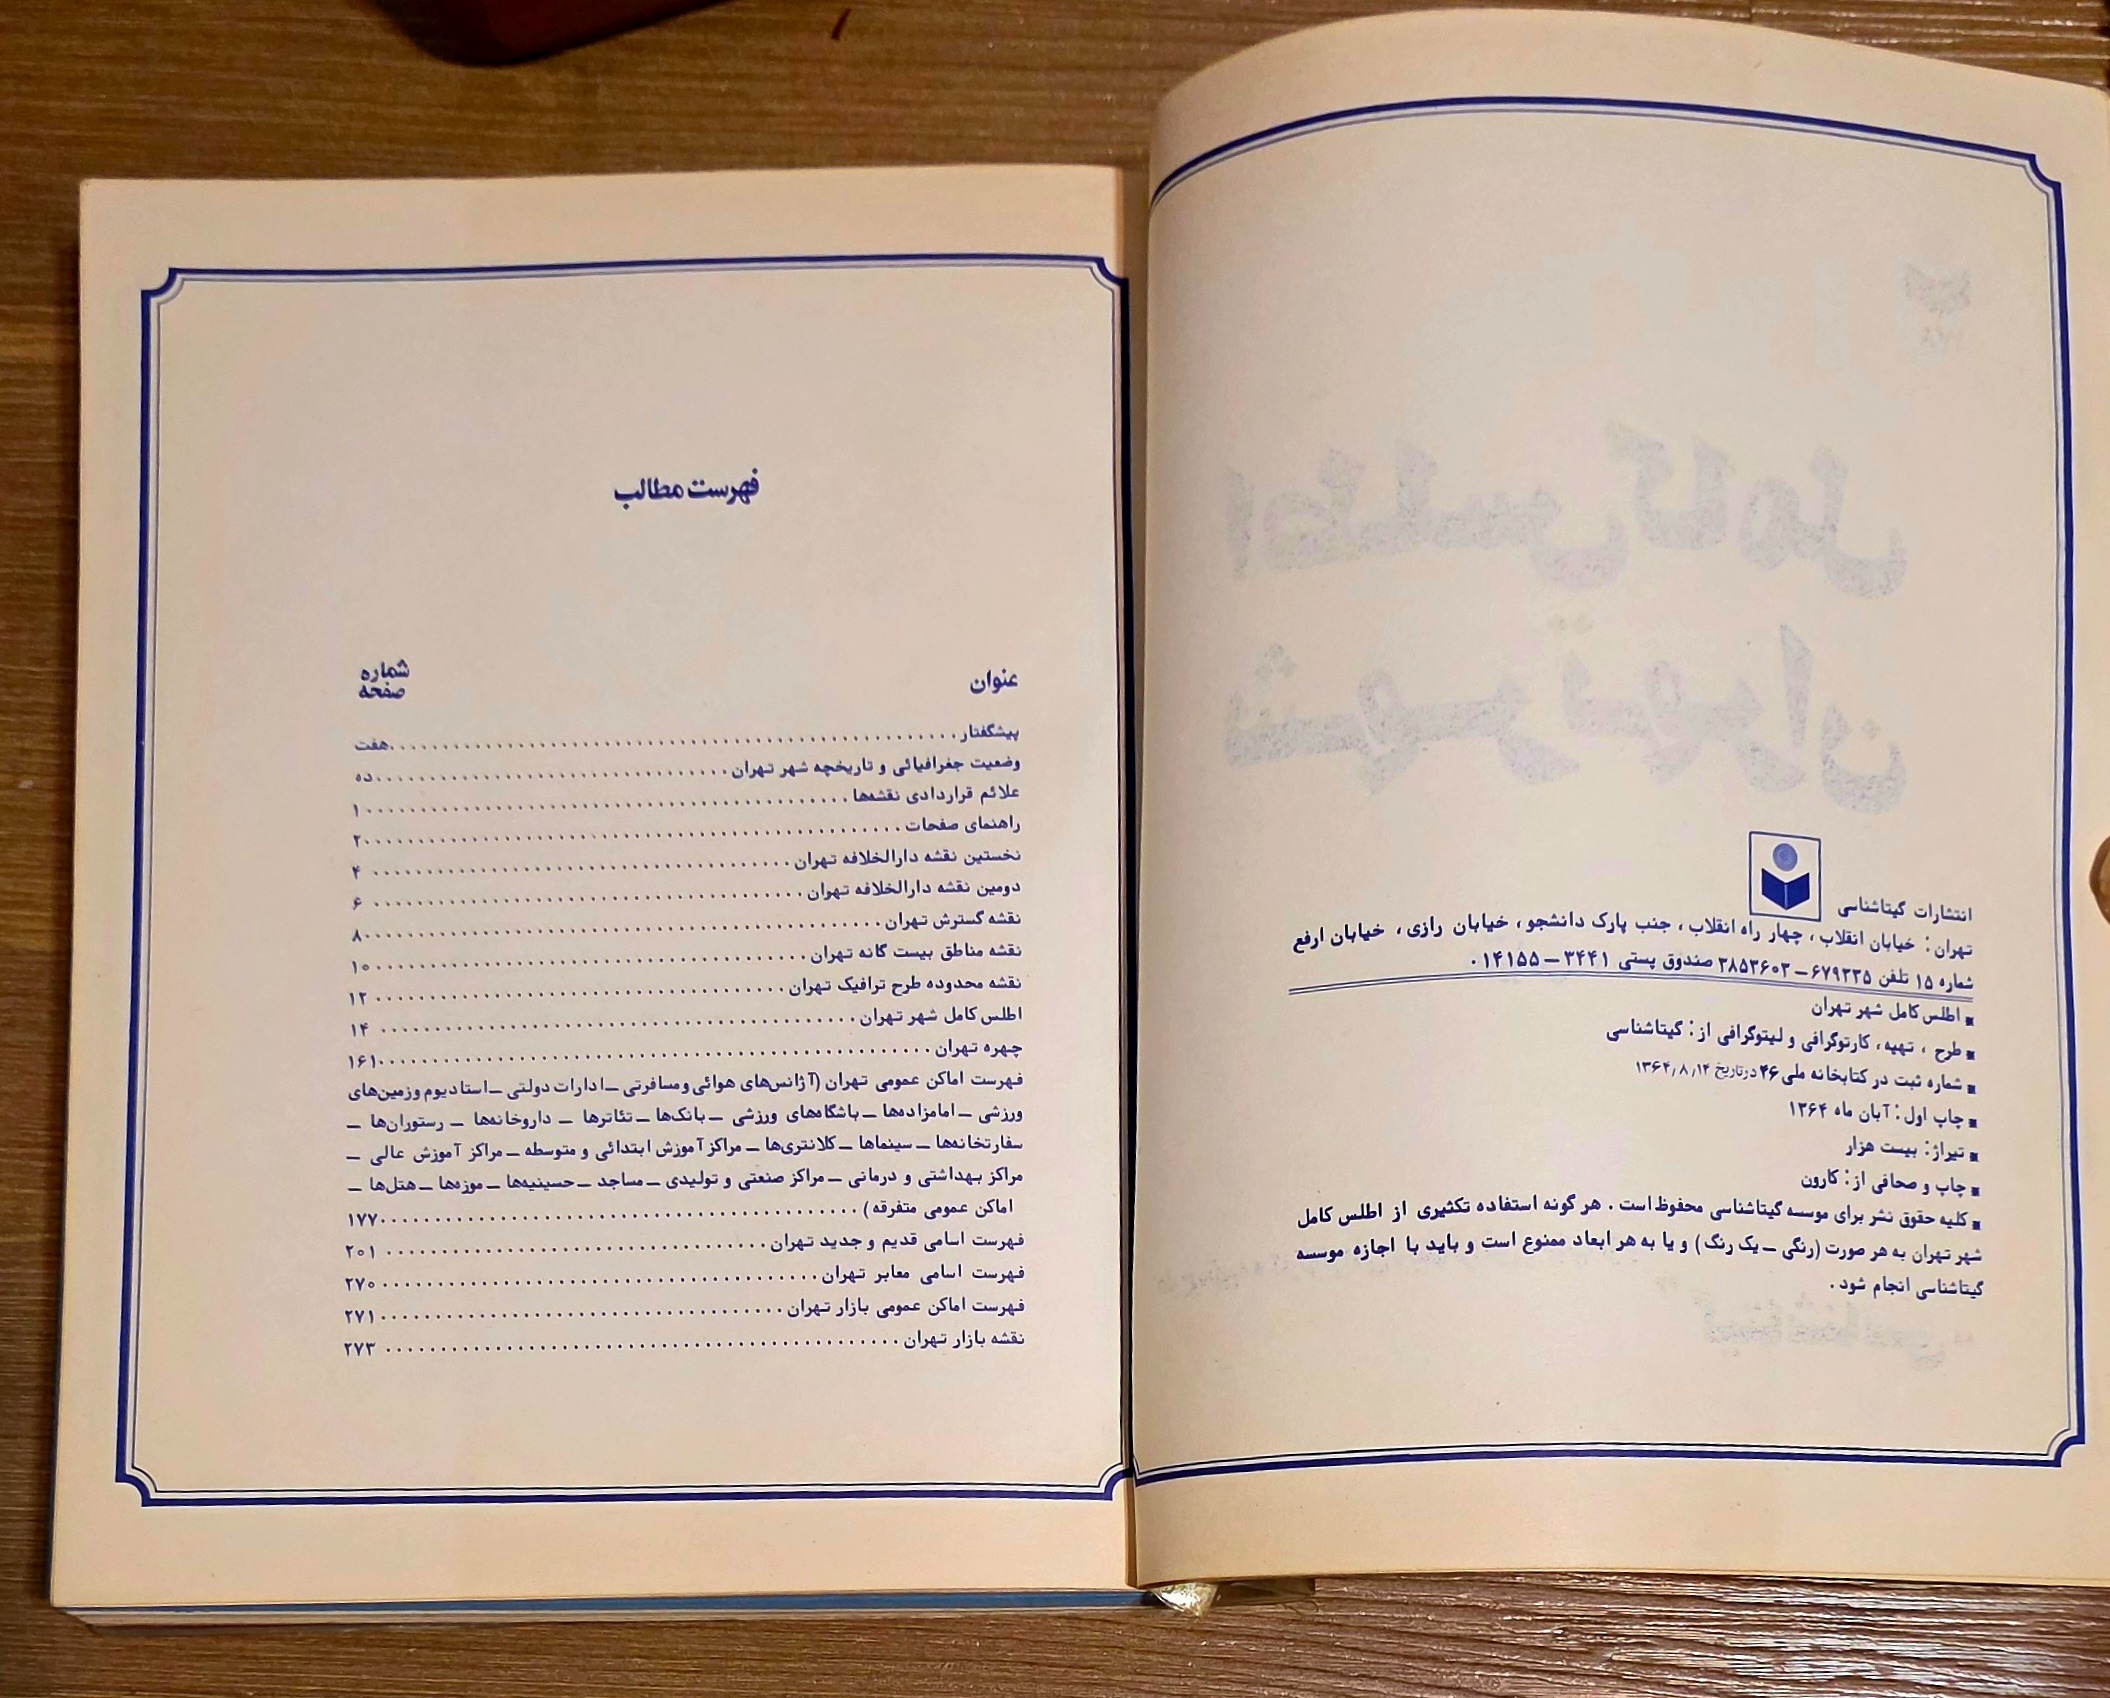 انتشارات گیتاشناسی
تهران: خیابان انقلاب، چهار راه انقلاب، جنب پارک دانشجو، خیابان رازی، خیابان ارفع
شماره ۱۵ تلفن ۶۷۹۳۳۵ – ۳۸۵۳۶۰۲ صندوق پستی ۳۴۴۱ – ۱۴۱۵۵.
اطلس کامل شهر تهران
طرح، تهیه، کارتوگرافی و لیتوگرافی از: گیتاشناسی
شماره ثبت در کتابخانه ملی ۴۶ در تاریخ ۱۳۶۴٫۸٫۱۴
چاپ اول: آبان ماه ۱۳۶۴
تیراژ: بیست هزار
چاپ و صحافی از: کارون
کلیه حقوق نشر برای موسسه گیتاشناسی محفوظ است. هرگونه استفاده تکثیری از اطلس کامل
شهر تهران به هر صورت (رنگی – یک رنگ) و یا به هر ابعاد ممنوع است و باید با اجازه موسسه
گیتاشناسی انجام شود.
فهرست مطالب
عنوان شماره صفحه
پیشگفتار ........ هفت
وضعیت جغرافیائی و تاریخچه شهر تهران ........ ده
علائم قراردادی نقشه‌ها ........ ۱
راهنمای صفحات ........ ۲
نخستین نقشه دارالخلافه تهران ........ ۴
دومین نقشه دارالخلافه تهران ........ ۶
نقشه گسترش تهران ........ ۸
نقشه مناطق بیست گانه تهران ........ ۱۰
نقشه محدوده طرح ترافیک تهران ........ ۱۲
اطلس کامل شهر تهران ........ ۱۴
چهره تهران ........ ۱۶۱
فهرست اماکن عمومی تهران (آژانس‌های هوائی و مسافرتی – ادارات دولتی – استادیوم و زمین‌های
ورزشی – امامزاده‌ها – باشگاه‌های ورزشی – بانک‌ها – تئاترها – داروخانه‌ها – رستوران‌ها –
سفارتخانه‌ها – سینماها – کلانتری‌ها – مراکز آموزش ابتدائی و متوسطه – مراکز آموزش عالی –
مراکز بهداشتی و درمانی – مراکز صنعتی و تولیدی – مساجد – حسینیه‌ها – موزه‌ها – هتل‌ها –
اماکن عمومی متفرقه) ........ ۱۷۷
فهرست اسامی قدیم و جدید تهران ........ ۲۰۱
فهرست اسامی معابر تهران ........ ۲۷۰
فهرست اماکن عمومی بازار تهران ........ ۲۷۱
نقشه بازار تهران ........ ۲۷۳